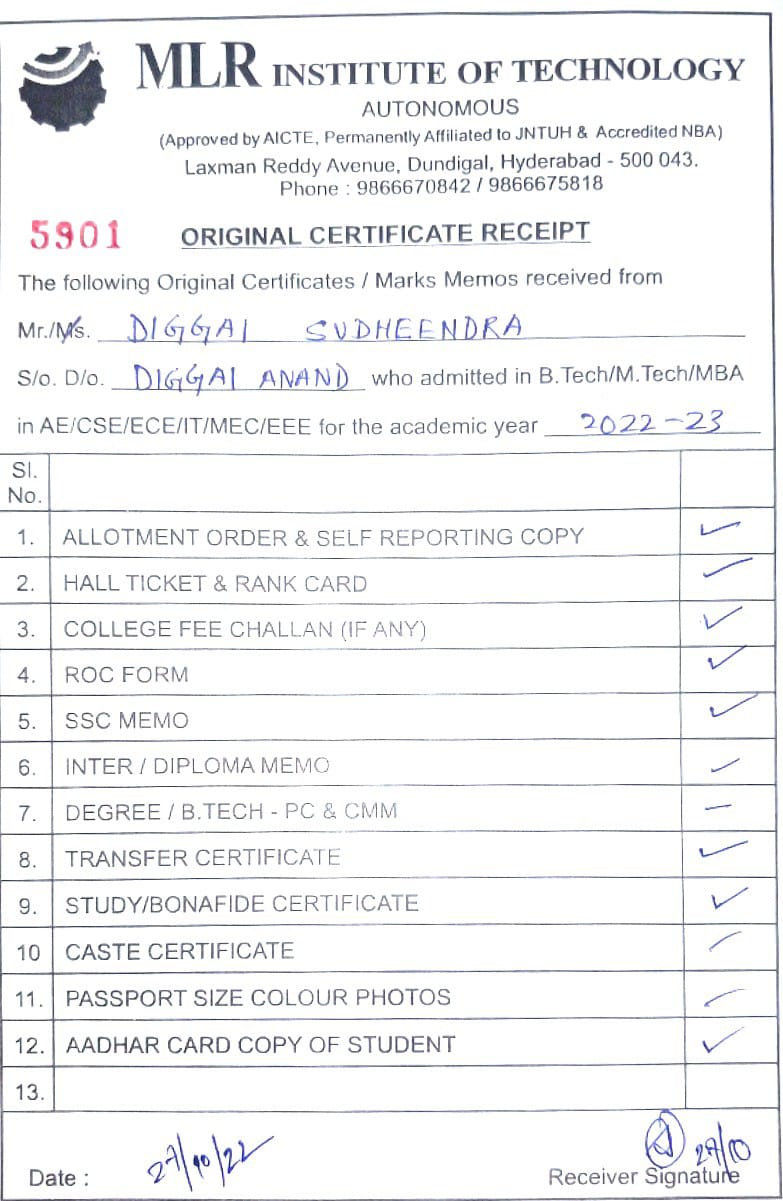 MLR INSTITUTE OF TECHNOLOGY
AUTONOMOUS
(Approved by AICTE, Permanently Affiliated to JNTUH & Accredited NBA)
Laxman Reddy Avenue, Dundigal, Hyderabad - 500 043.
Phone : 9866670842 / 9866675818
5901 ORIGINAL CERTIFICATE RECEIPT
The following Original Certificates / Marks Memos received from
Mr./Ms. DIGGAI SUDHEENDRA
S/o. D/o. DIGGAI ANAND who admitted in B.Tech/M.Tech/MBA
in AE/CSE/ECE/IT/MEC/EEE for the academic year 2022-23
Sl.
No.
1. ALLOTMENT ORDER & SELF REPORTING COPY ✓
2. HALL TICKET & RANK CARD ✓
3. COLLEGE FEE CHALLAN (IF ANY) ✓
4. ROC FORM ✓
5. SSC MEMO ✓
6. INTER / DIPLOMA MEMO ✓
7. DEGREE / B.TECH - PC & CMM –
8. TRANSFER CERTIFICATE ✓
9. STUDY/BONAFIDE CERTIFICATE ✓
10 CASTE CERTIFICATE ✓
11. PASSPORT SIZE COLOUR PHOTOS ✓
12. AADHAR CARD COPY OF STUDENT ✓
13.
Date : 27/10/22
27/10
Receiver Signature